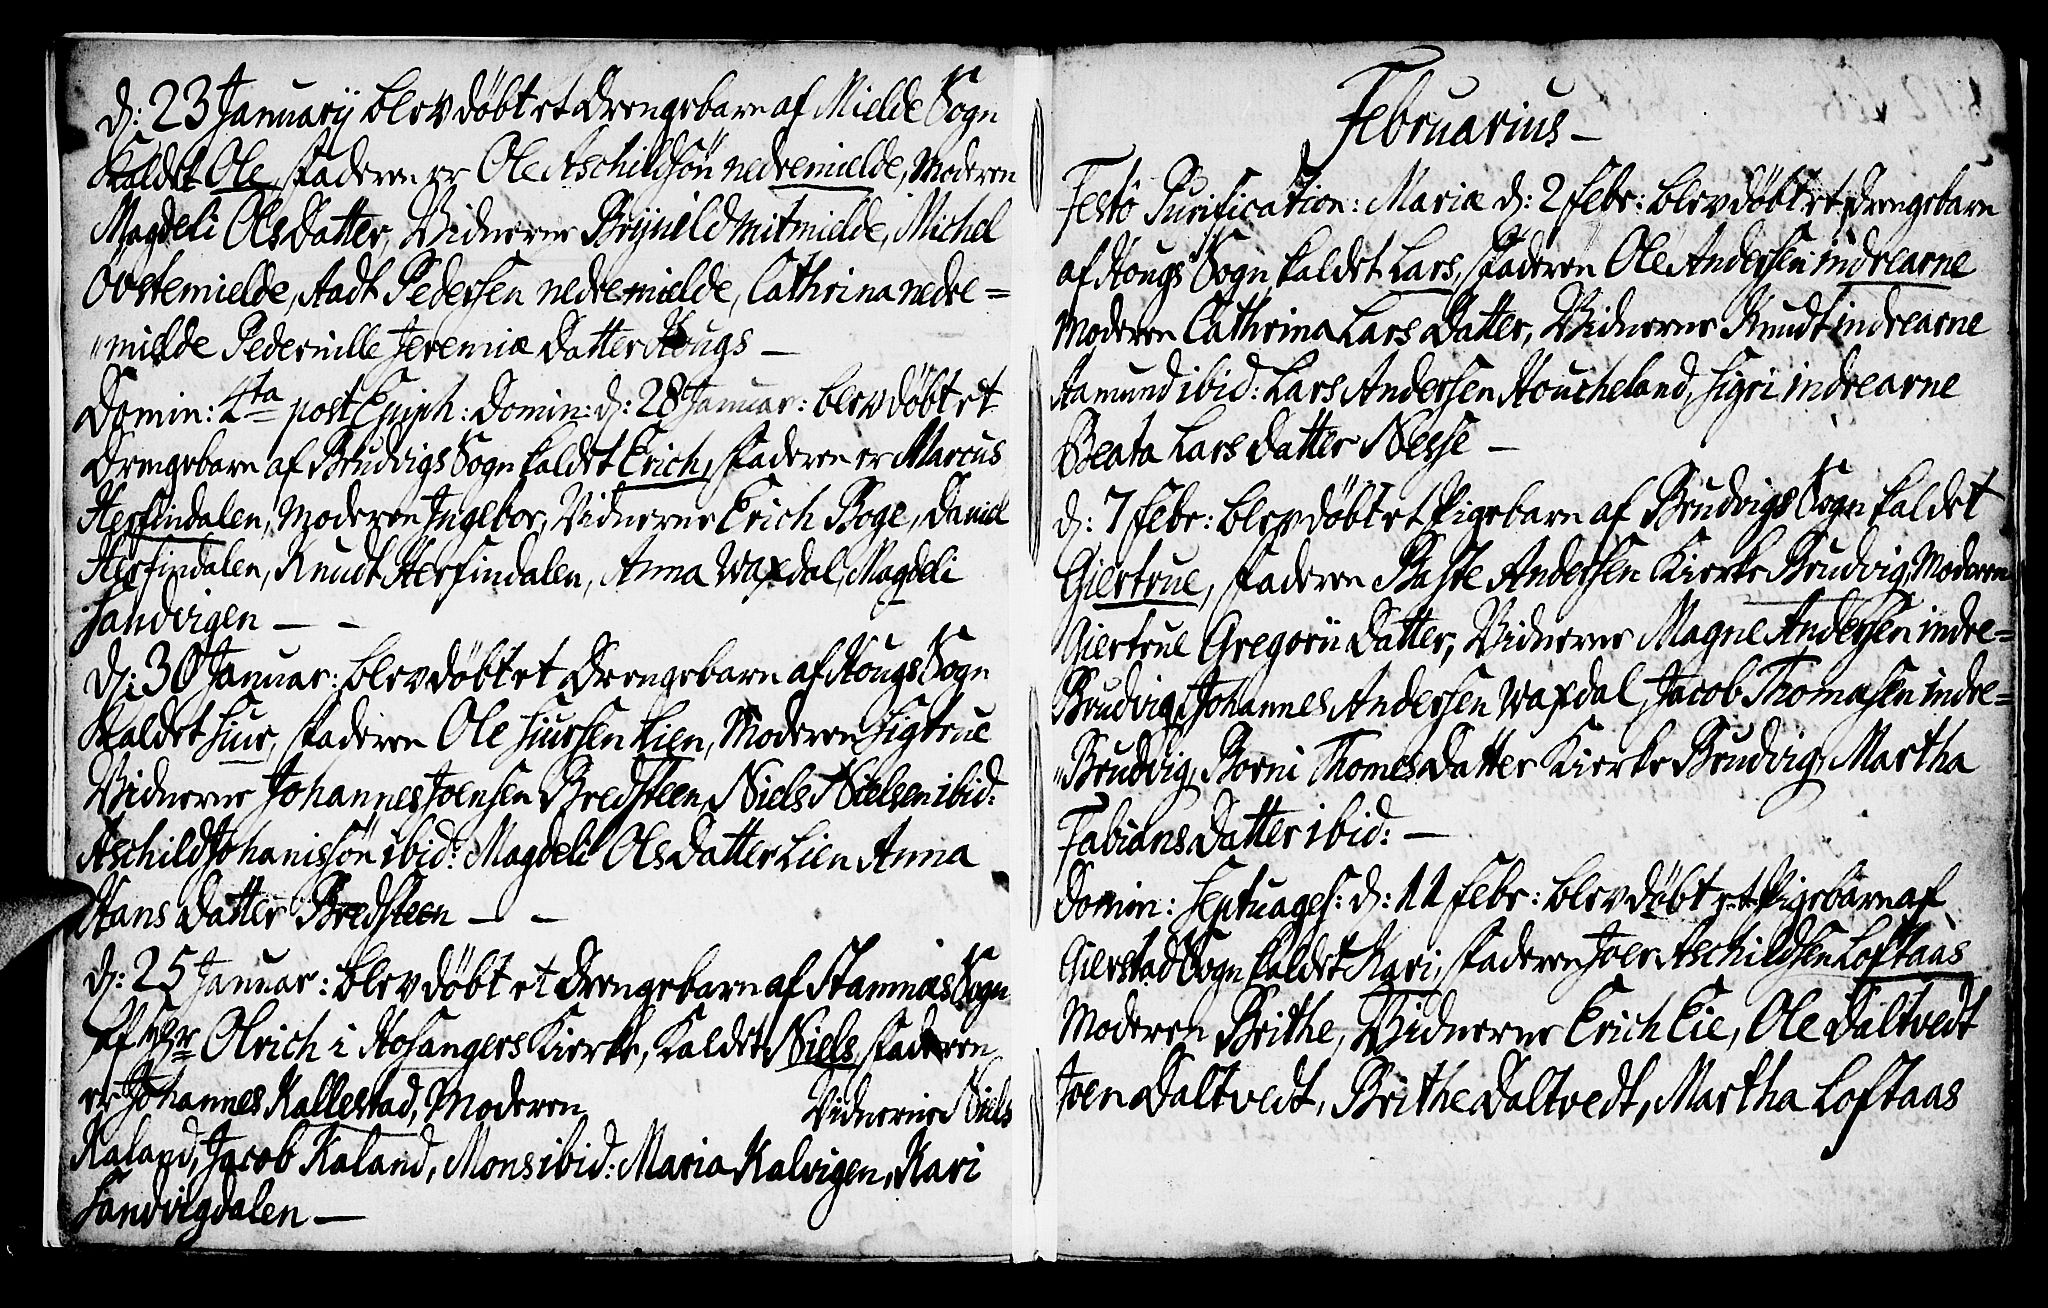 d: 23 Januarij blev døbt et drengebarn af Mielde Sogn
kaldet Ole, Faderen er Ole Aschildsøn nedremielde, Moderen
Magdeli Olsdatter, Vidnerne Brynild mitmielde, Michel
Ovstemielde, Aadt Pedersen nedremielde, Cathrina nedre=
"mielde Pedernille Jeremiæ datter Hougs —
Domin: 4ta post Epiph: Domin: d: 28 Januar: blev døbt et
Drengebarn af Brudvigs Sogn kaldet Erich, Faderen er Marcus
Herfindalen, Moderen Ingebor, Vidnerne Erich Boge, Daniel
Herfindalen, Knudt Herfindalen, Anna Waxdal, Magdeli
Sandvigen — —
d: 30 Januar: blev døbt et Drengebarn af Hougs Sogn
kaldet Siur, Faderen Ole Siursen Lien, Moderen Sigtrue
Vidnerne Johannes Joensen Bredsteen, Niels Nielsen ibid:
Aschild Johanissøn ibid: Magdeli Olsdatter Lien Anna
Hans datter Bredsteen — —
d: 25 Januar: blev døbt et drengebarn af Stamnæs Sogn
af Hr Olrich i Hosangers Kierke, kaldet Niels, Faderen
er Johannes Kallestad, Moderen Vidnerne Niels
Kaland, Jacob Kaland, Mons ibid: Maria Kalvigen, Kari
Sandvigdalen —
Februarius —
Festo Purification: Mariæ d: 2 Febr: blev døbt et drengebarn
af Hougs Sogn kaldet Lars, Faderen Ole Andersen indrearne
Moderen Cathrina Lars datter, Vidnerne Knudt indrearne
Aamund ibid: Lars Andersen Houcheland, Sigri indrearne
Beata Lars datter Nesse —
d: 7 Febr: blev døbt et Pigebarn af Brudvigs Sogn kaldet
Giertrue, Faderen Baste Andersen Kierke Brudvig, Moderen
Giertrue Gregorii datter, Vidnerne Magne Andersen indre=
Brudvig, Johannes Andersen Waxdal, Jacob Thomasen indre=
"Brudvig, Borni Thomes datter Kierke Brudvig, Martha
Fabians datter ibid: —
Domin: Septuages: d: 11 Febr: blev døbt et Pigebarn af
Gierstad Sogn kaldet Kari, Faderen Joen Aschildsen Loftaas
Moderen Brithe, Vidnerne Erich Eie, Ole Daltvedt
Joen Daltvedt, Brithe Daltvedt, Martha Loftaas